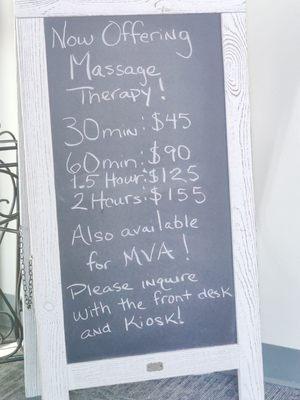 Now Offering
Massage
Therapy!
30min: $45
60min: $90
1.5 Hour: $125
2 Hours: $155
Also available
for MVA!
Please inquire
with the front desk
and Kiosk!